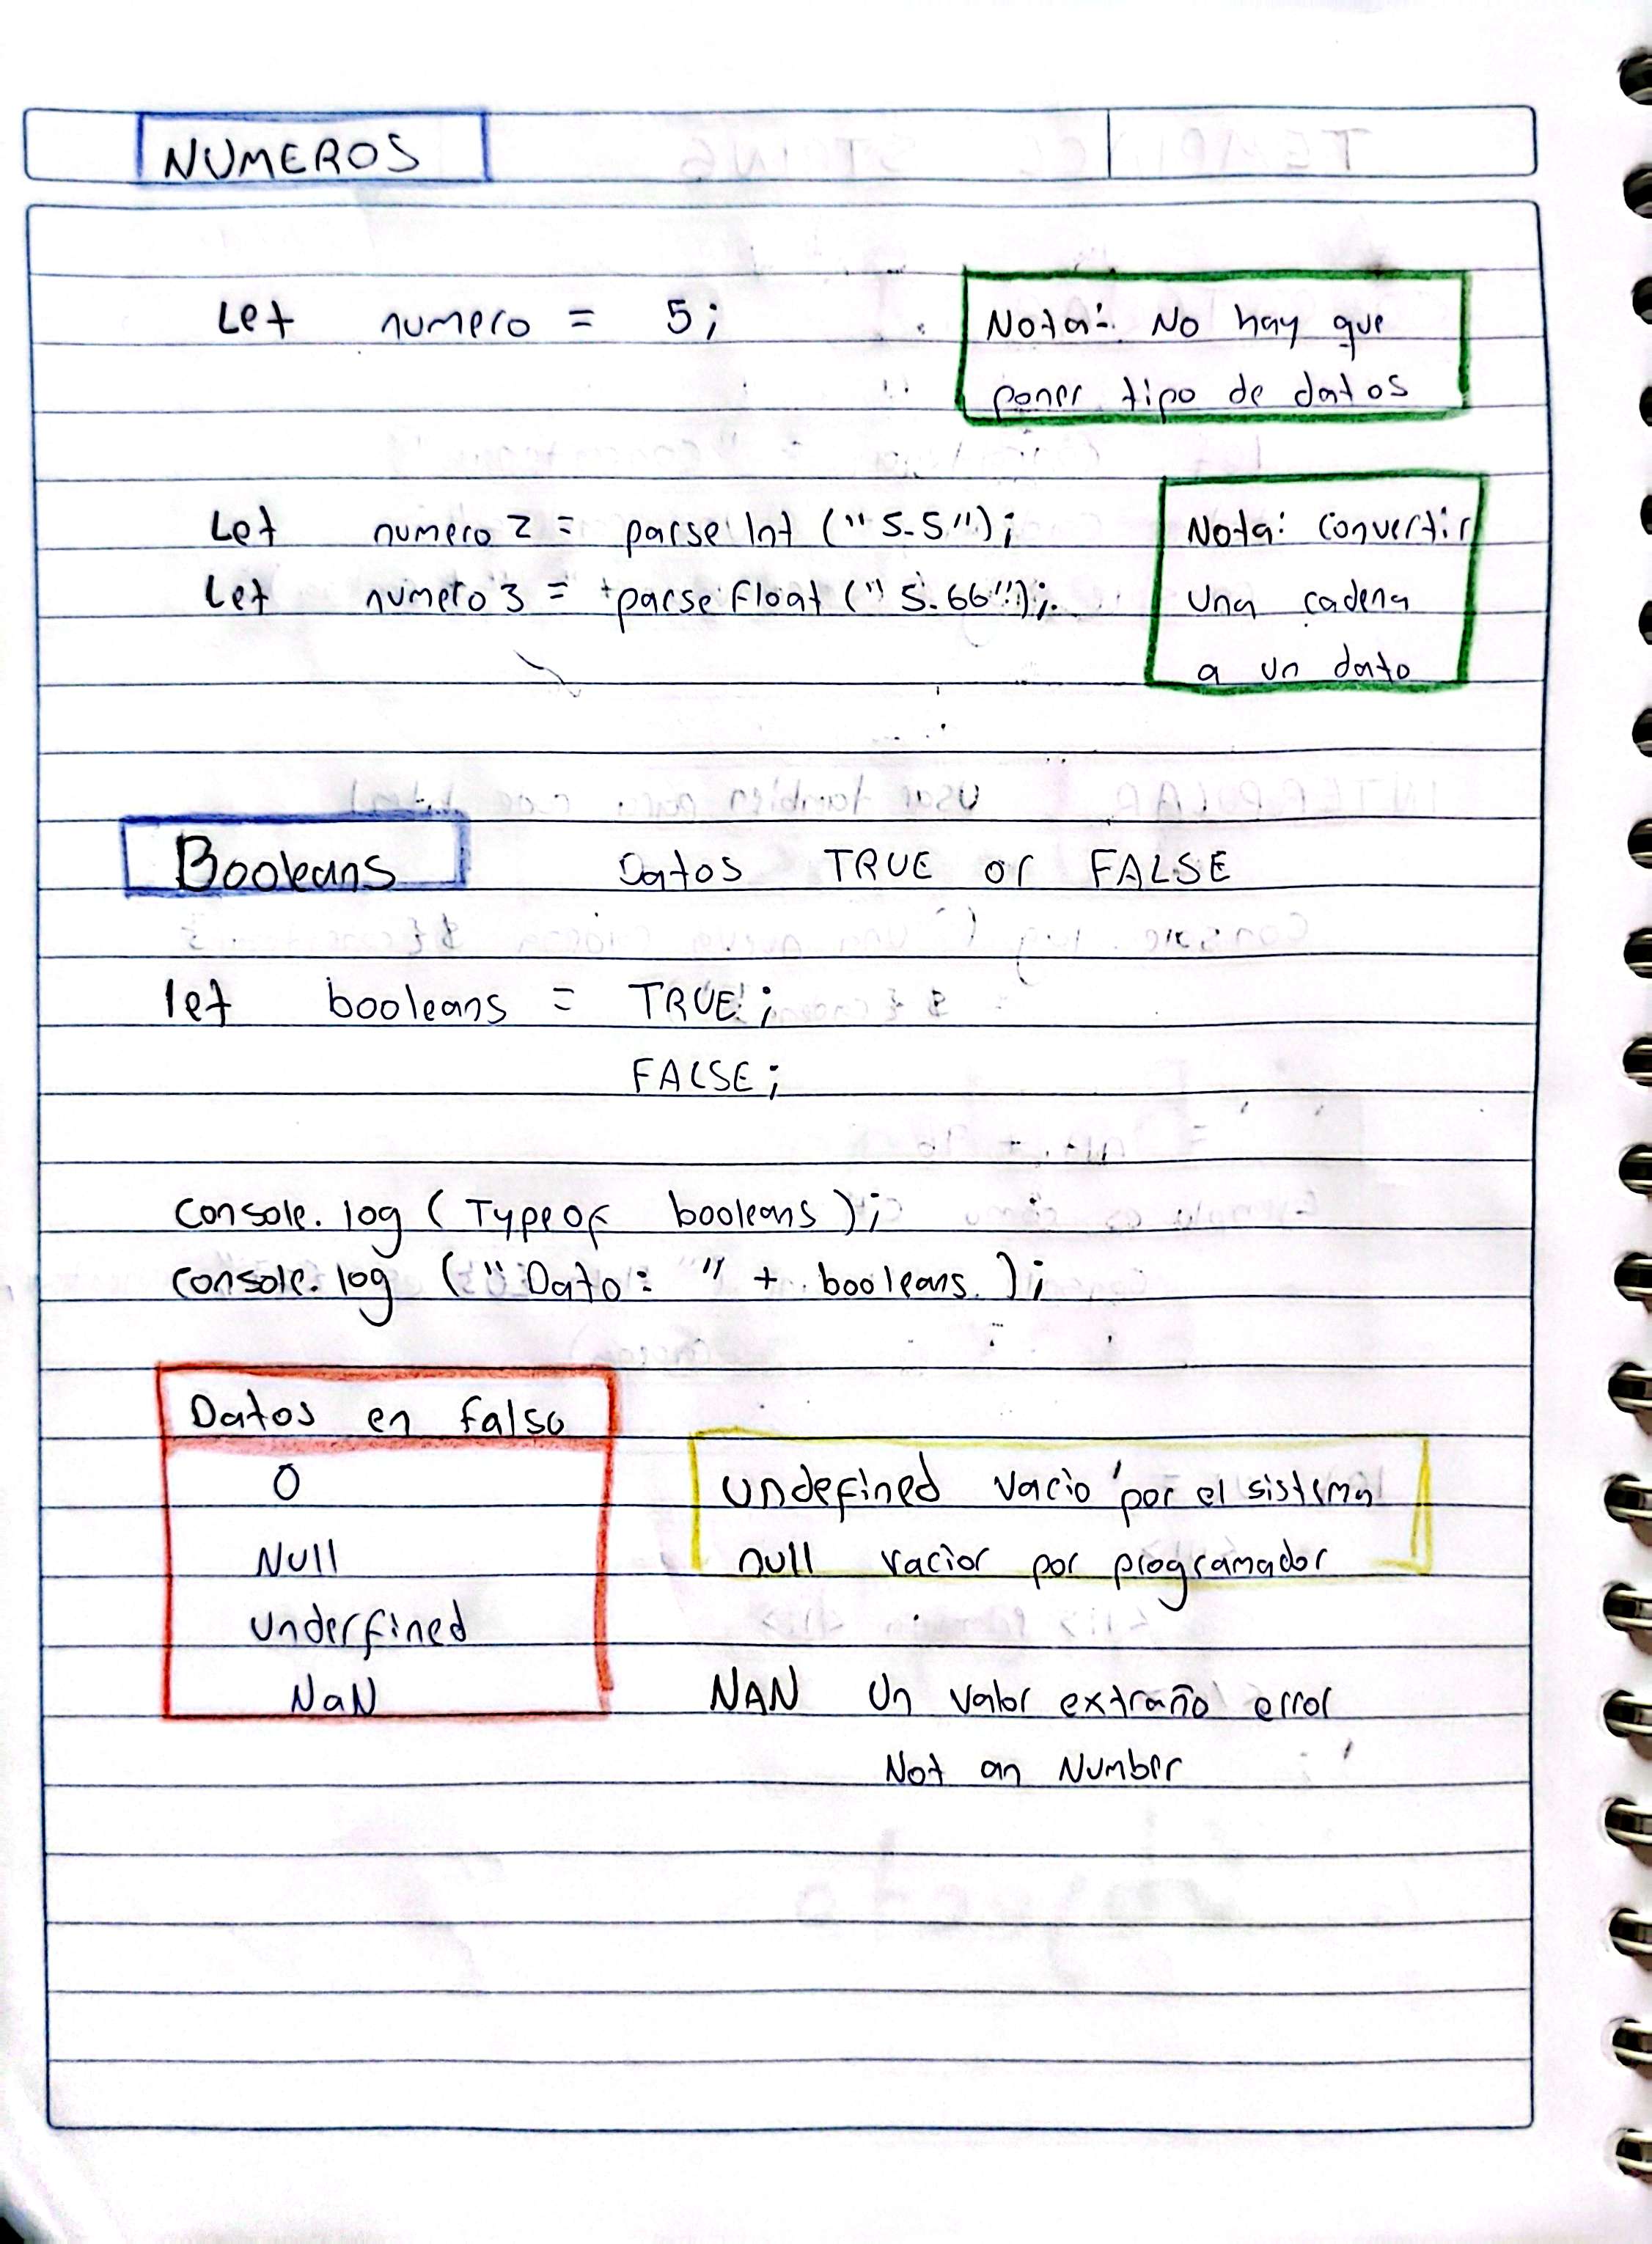 NUMEROS
Let numero = 5;
Nota: No hay que
poner tipo de datos
Let numero 2 = parse Int ("5.5");
Let numero 3 = parse Float ("5.66");
Nota: Convertir
Una cadena
a un dato
Booleans Datos TRUE or FALSE
let booleans = TRUE;
FALSE;
console.log (Typeof booleans);
console.log ("Dato: " + booleans );
Datos en falso
0
Null
underfined
NaN
undefined vacio por el sistema
null vacior por programador
NAN Un valor extraño error
Not an Number